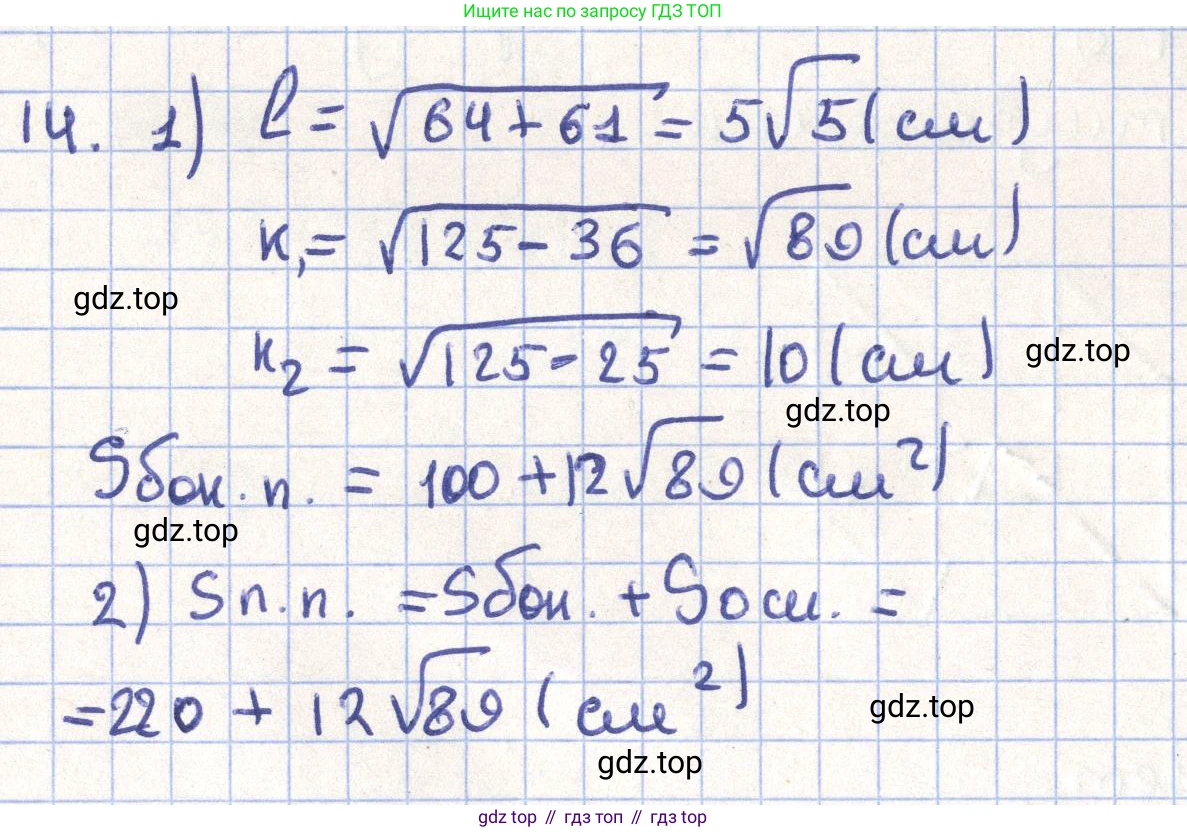 Ищите нас по запросу ГДЗ ТОП
14. 1) l = √(64 + 61) = 5√5 (см)
к₁ = √(125 - 36) = √89 (см)
gdz.top
к₂ = √(125 - 25) = 10 (см)
gdz.top
gdz.top
Sбок.п. = 100 + 12√89 (см²)
gdz.top
2) Sп.п. = Sбок. + Sосн. =
= 220 + 12√89 (см²)
gdz.top
gdz.top
gdz top // гдз топ // gdz top